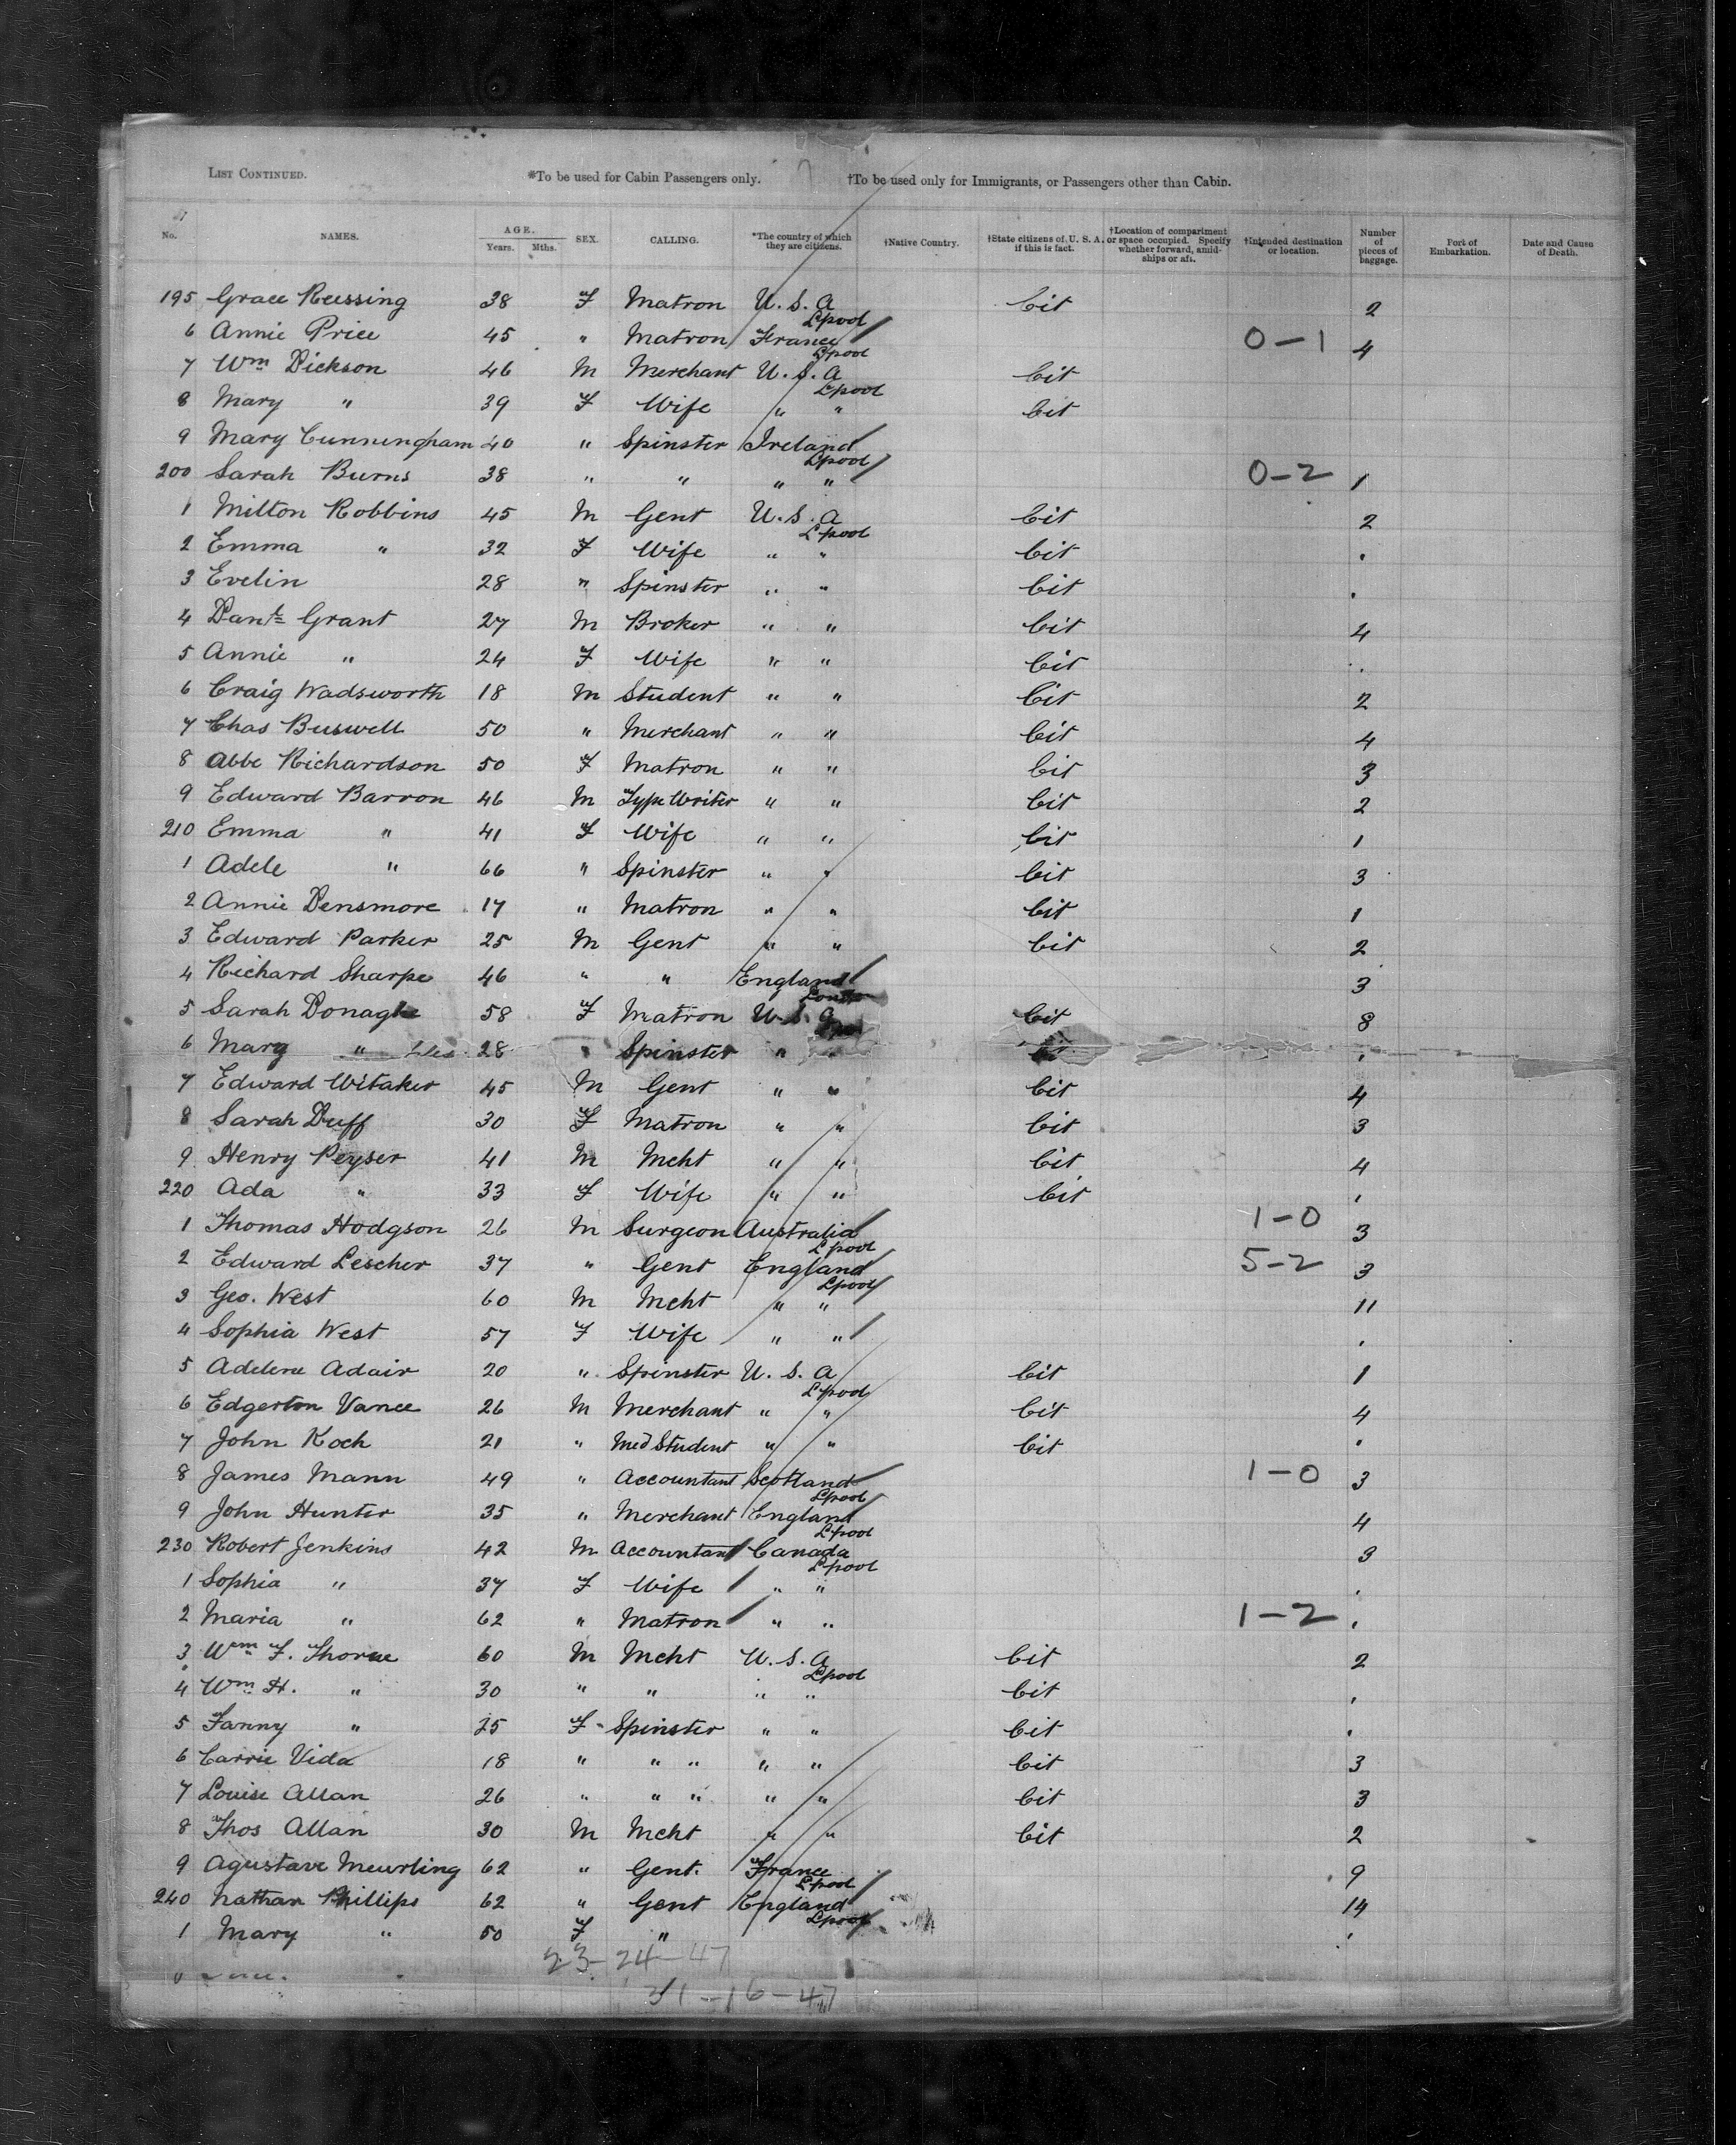 LIST CONTINUED. *To be used for Cabin Passengers only. †To be used only for Immigrants, or Passengers other than Cabin.
No. NAMES. AGE. Years. Mths. SEX. CALLING. *The country of which they are citizens. †Native Country. †State citizens of U. S. A. if this is fact. †Location of compartment or space occupied. Specify whether forward, amidships or aft. †Intended destination or location. Number of pieces of baggage. Port of Embarkation. Date and Cause of Death.
195 Grace Reessing 38 F Matron U. S. A Lpool Cit 2
6 Annie Price 45 " Matron France Lpool 0-1 4
7 Wm Dickson 46 M Merchant U. S. A Lpool Cit
8 Mary " 39 F Wife " " Cit
9 Mary Cunningham 40 " Spinster Ireland Lpool
200 Sarah Burns 38 " " " " 0-2 1
1 Milton Robbins 45 M Gent U. S. A Lpool Cit 2
2 Emma " 32 F Wife " " Cit .
3 Evelin 28 " Spinster " " Cit .
4 Danl Grant 27 M Broker " " Cit 4
5 Annie " 24 F Wife " " Cit ..
6 Craig Wadsworth 18 M Student " " Cit 2
7 Chas Buswell 50 " Merchant " " Cit 4
8 Abbe Richardson 50 F Matron " " Cit 3
9 Edward Barron 46 M Type Writer " " Cit 2
210 Emma " 41 F Wife " " Cit 1
1 Adele " 66 " Spinster " " Cit 3
2 Annie Densmore 17 " Matron " " Cit 1
3 Edward Parker 25 M Gent " " Cit 2
4 Richard Sharpe 46 " " England 3
5 Sarah Donaghe 58 F Matron U. S. A Cit 8
6 Mary " 28 " Spinster " " .
7 Edward Witaker 45 M Gent " " Cit 4
8 Sarah Duff 30 F Matron " " Cit 3
9 Henry Peyser 41 M Mcht " " Cit 4
220 Ada " 33 F Wife " " Cit .
1 Thomas Hodgson 26 M Surgeon Australia Lpool 1-0 3
2 Edward Lescher 37 " Gent England Lpool 5-2 3
3 Geo. West 60 M Mcht " " 11
4 Sophia West 57 F Wife " " .
5 Adelene Adair 20 " Spinster U. S. A Lpool Cit 1
6 Edgerton Vance 26 M Merchant " " Cit 4
7 John Koch 21 " Med Student " " Cit .
8 James Mann 49 " Accountant Scotland Lpool 1-0 3
9 John Hunter 35 " Merchant England Lpool 4
230 Robert Jenkins 42 M Accountant Canada Lpool 3
1 Sophia " 37 F Wife " " .
2 Maria " 62 " Matron " " 1-2 .
3 Wm F. Thorne 60 M Mcht U. S. A Lpool Cit 2
4 Wm H. " 30 " " " " Cit .
5 Fanny " 25 F Spinster " " Cit .
6 Carrie Vida 18 " " " " " Cit 3
7 Louise Allan 26 " " " " " Cit 3
8 Thos Allan 30 M Mcht " " Cit 2
9 Agustave Meurling 62 " Gent. France Lpool 9
240 Nathan Phillips 62 " Gent England Lpool 14
1 Mary " 50 F " .
23-24-47
31-16-47